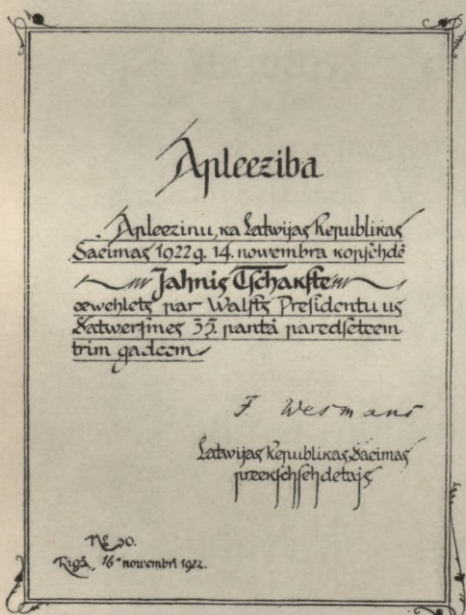 Apleeziba
Apleezinu, ka Latwijas Republikas
Saeimas 1922 g. 14. novembra kopsehdē
Jahnis Tschakste
eewehlets par Walsts Presidentu us
Satwersmes 35. pantā paredseteem
trim gadeem
F. Wesmans
Latwijas Republikas Saeimas
preekschsehdetajs
Rigā, 16. novembri 1922.